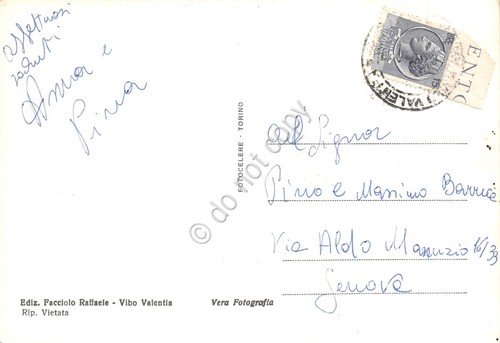 affettuosi
saluti
Anna e
Pina
ENTO
VALEN
FOTOCELERE - TORINO
Al Signor
Pino e Massimo
Via Aldo Manuzio 16/33
Genova
Ediz. Facciolo Raffaele - Vibo Valentia
Rip. Vietata
Vera Fotografia
© do not copy